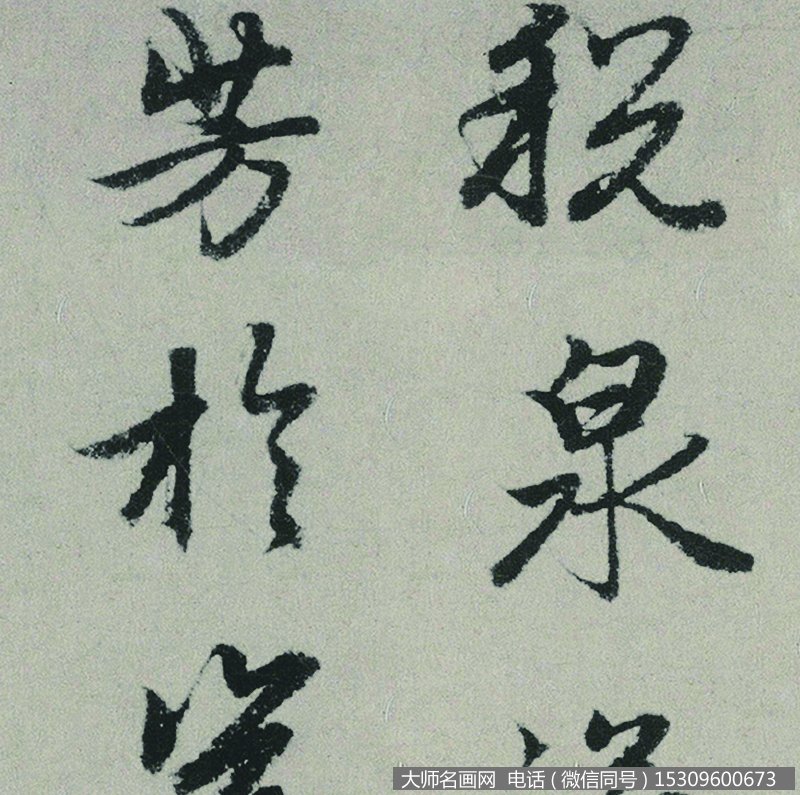 税泉
芳於
大师名画网 电话（微信同号）15309600673